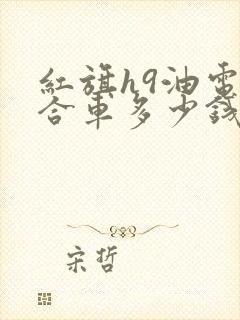 紅旗h9油電
合車多少錢
宋哲